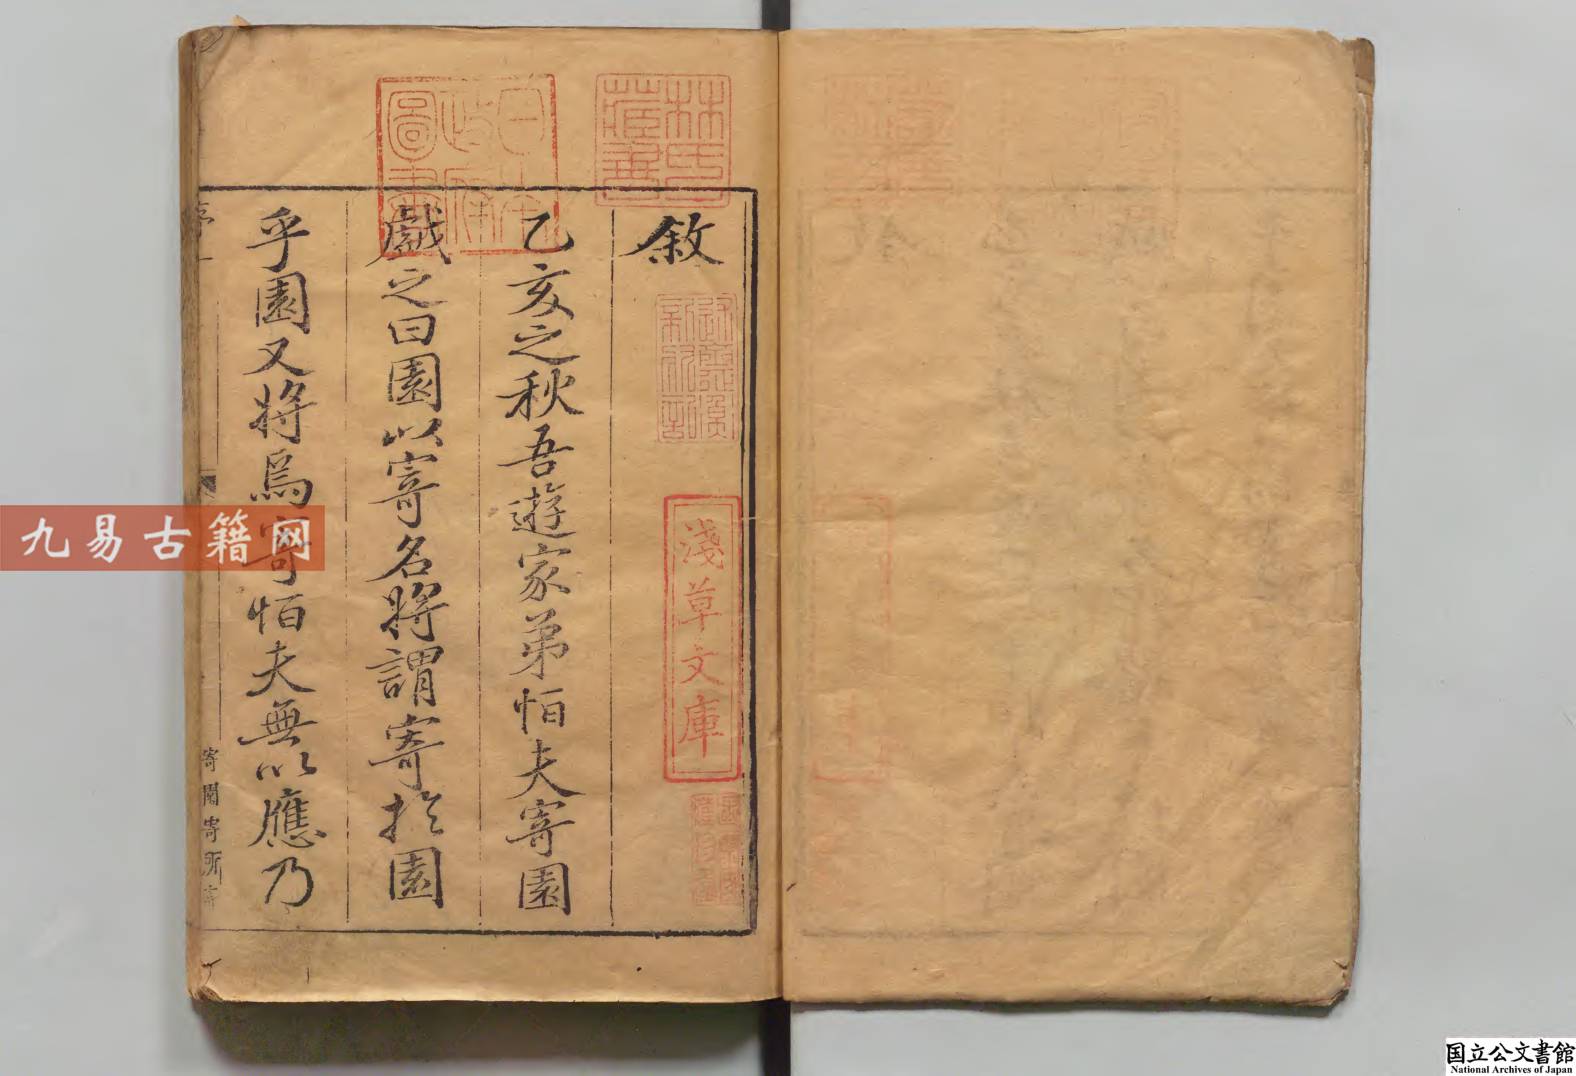 敘
乙亥之秋吾遊家弟怕夫寄園
戲之曰園以寄名將謂寄扵園
乎園又將爲寄怕夫無以應乃
寄園寄所寄
林氏藏書
日本政府圖書
淺草文庫
九易古籍网
国立公文書館
National Archives of Japan